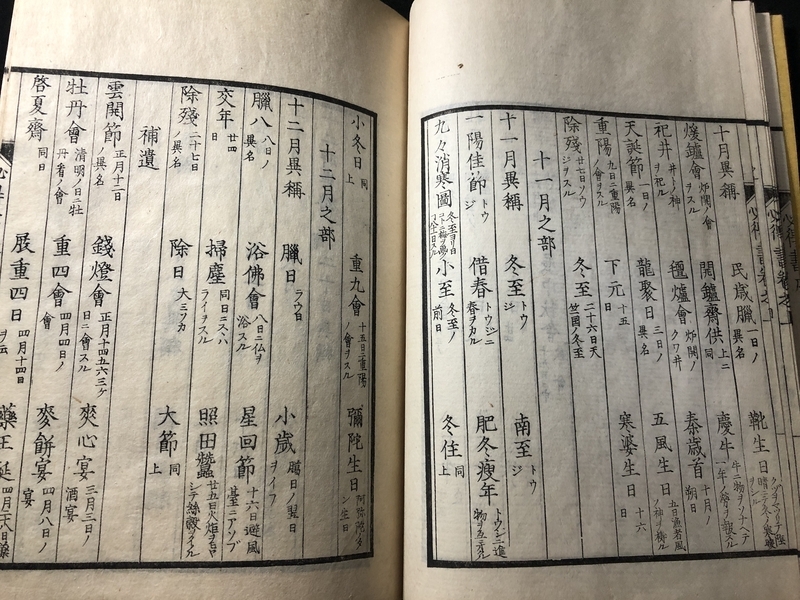 十月異稱 民歳臘 一日ノ異名 靴生日
煖鑪會 炉開ノ會ヲスル 開鑪齋供 同上ニ 慶牛
祀井 井ノ神ヲ祀ル 䃼爐會 炉開ノ 泰歳首 十月ノ朔日
天誕節 一日ノ異名 龍聚日 三日ノ異名 五風生日 五日漁者風ノ神ヲ祷ル
重陽 九日二重陽ノ會ヲスル 下元日 十五 寒婆生日 十六
除殘 廿七日 冬至 二十六日天竺國ノ冬至
十一月之部
十一月異稱 冬至 トウジ 南至 トウジ
一陽佳節 トウジ 借春 トウジニ春ヲカル 肥冬瘦年
九々消寒圖 小至 冬至ノ前日 冬住 同上
小冬日 同上 重九會 十五日二重陽ノ會ヲスル 彌陀生日
十二月之部
十二月異稱 臘日 ラウ日 小歳 臘日ノ翌日ヲイフ
臘八 八日ノ異名 浴佛會 八日二仏ヲ浴スル 星回節 十六日避風䑓ニアソブ
交年 廿四日 掃塵 同日ニスヽハライヲスル 照田蠶
除殘 二十七日ノ異名 除日 大ミソカ 大節 同上
補遺
雲開節 正月十二日ノ異名 錢燈會 正月十四五六三ケ日ニ會スル 夾心宴 三月三日ノ酒宴
牡丹會 清明ノ日ニ牡丹看ノ會 重四會 四月四日ノ會 麥餅宴 四月八日ノ宴
啓夏齋 同日 展重四日 四月十四日 藥王誕